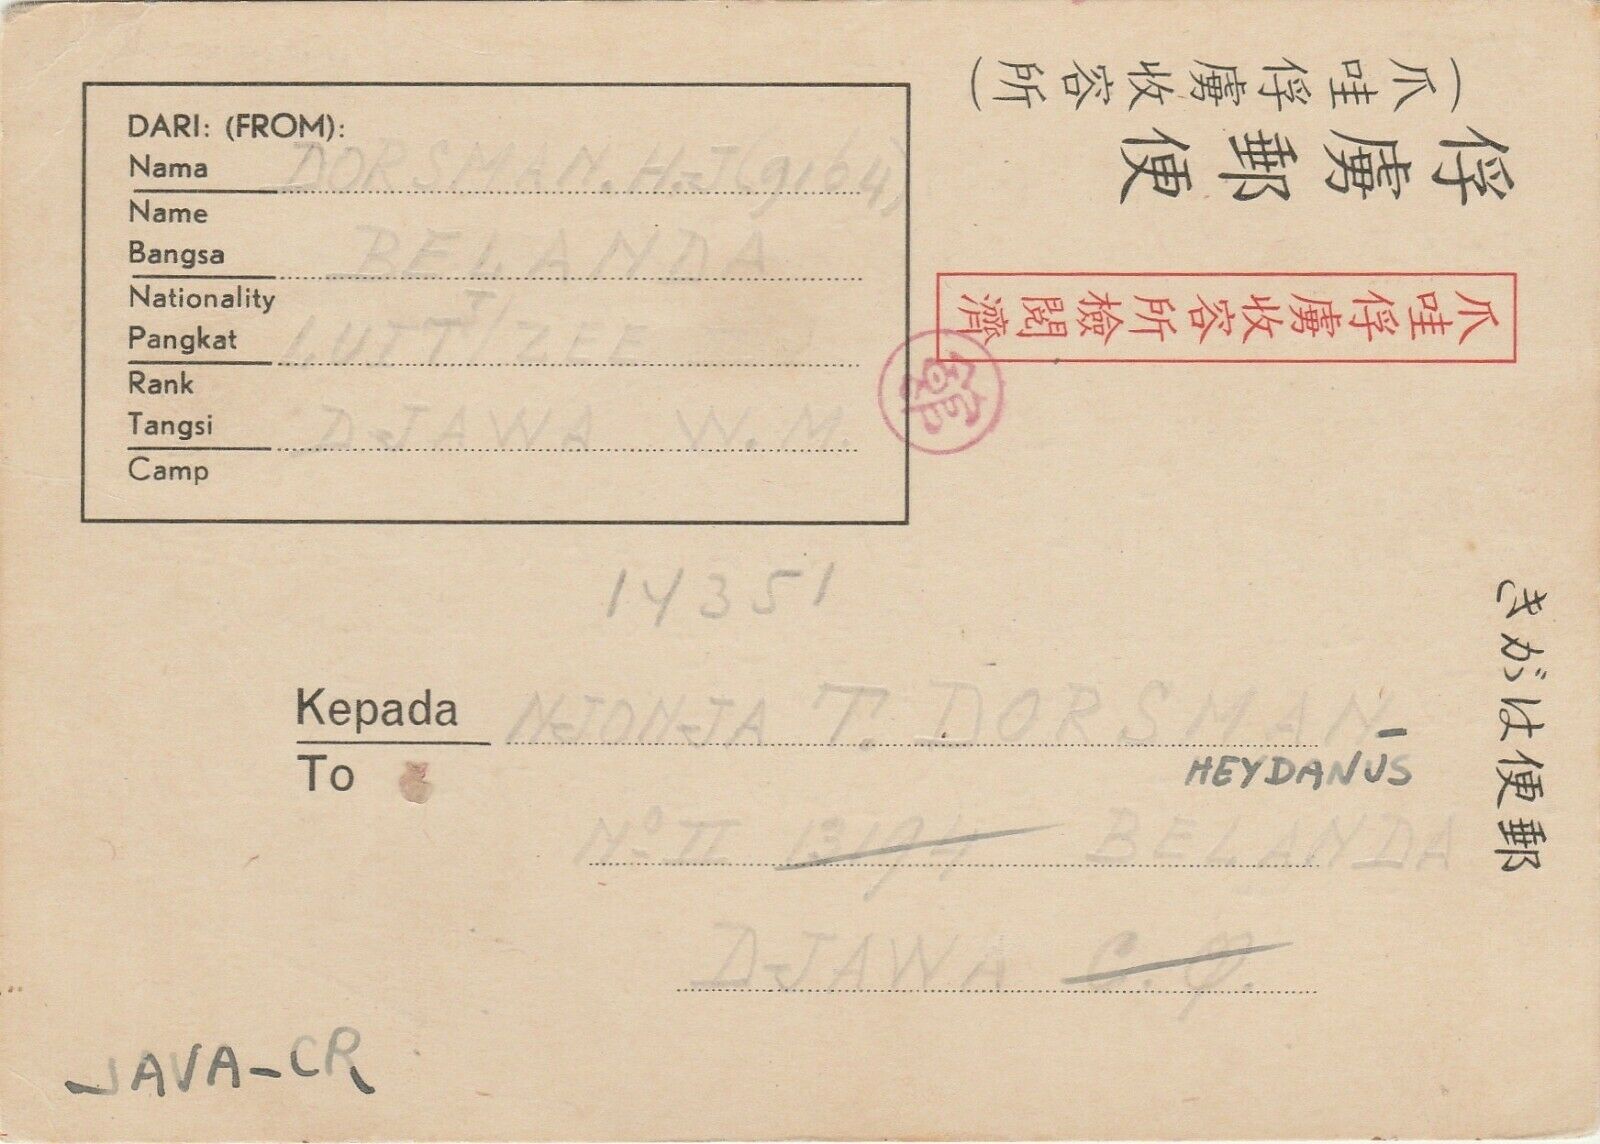 DARI: (FROM):
Nama DORSMAN. H.J (9164)
Name
Bangsa BELANDA
Nationality
Pangkat LUITT/ZEE
Rank
Tangsi DJAWA W.M.
Camp
(爪哇俘虜收容所)
俘虜郵便
爪哇俘虜收容所檢閲濟
きがは便郵
14351
Kepada NJONJA T. DORSMAN-
To
HEYDANUS
No II 13194 BELANDA
DJAWA
JAVA-CR